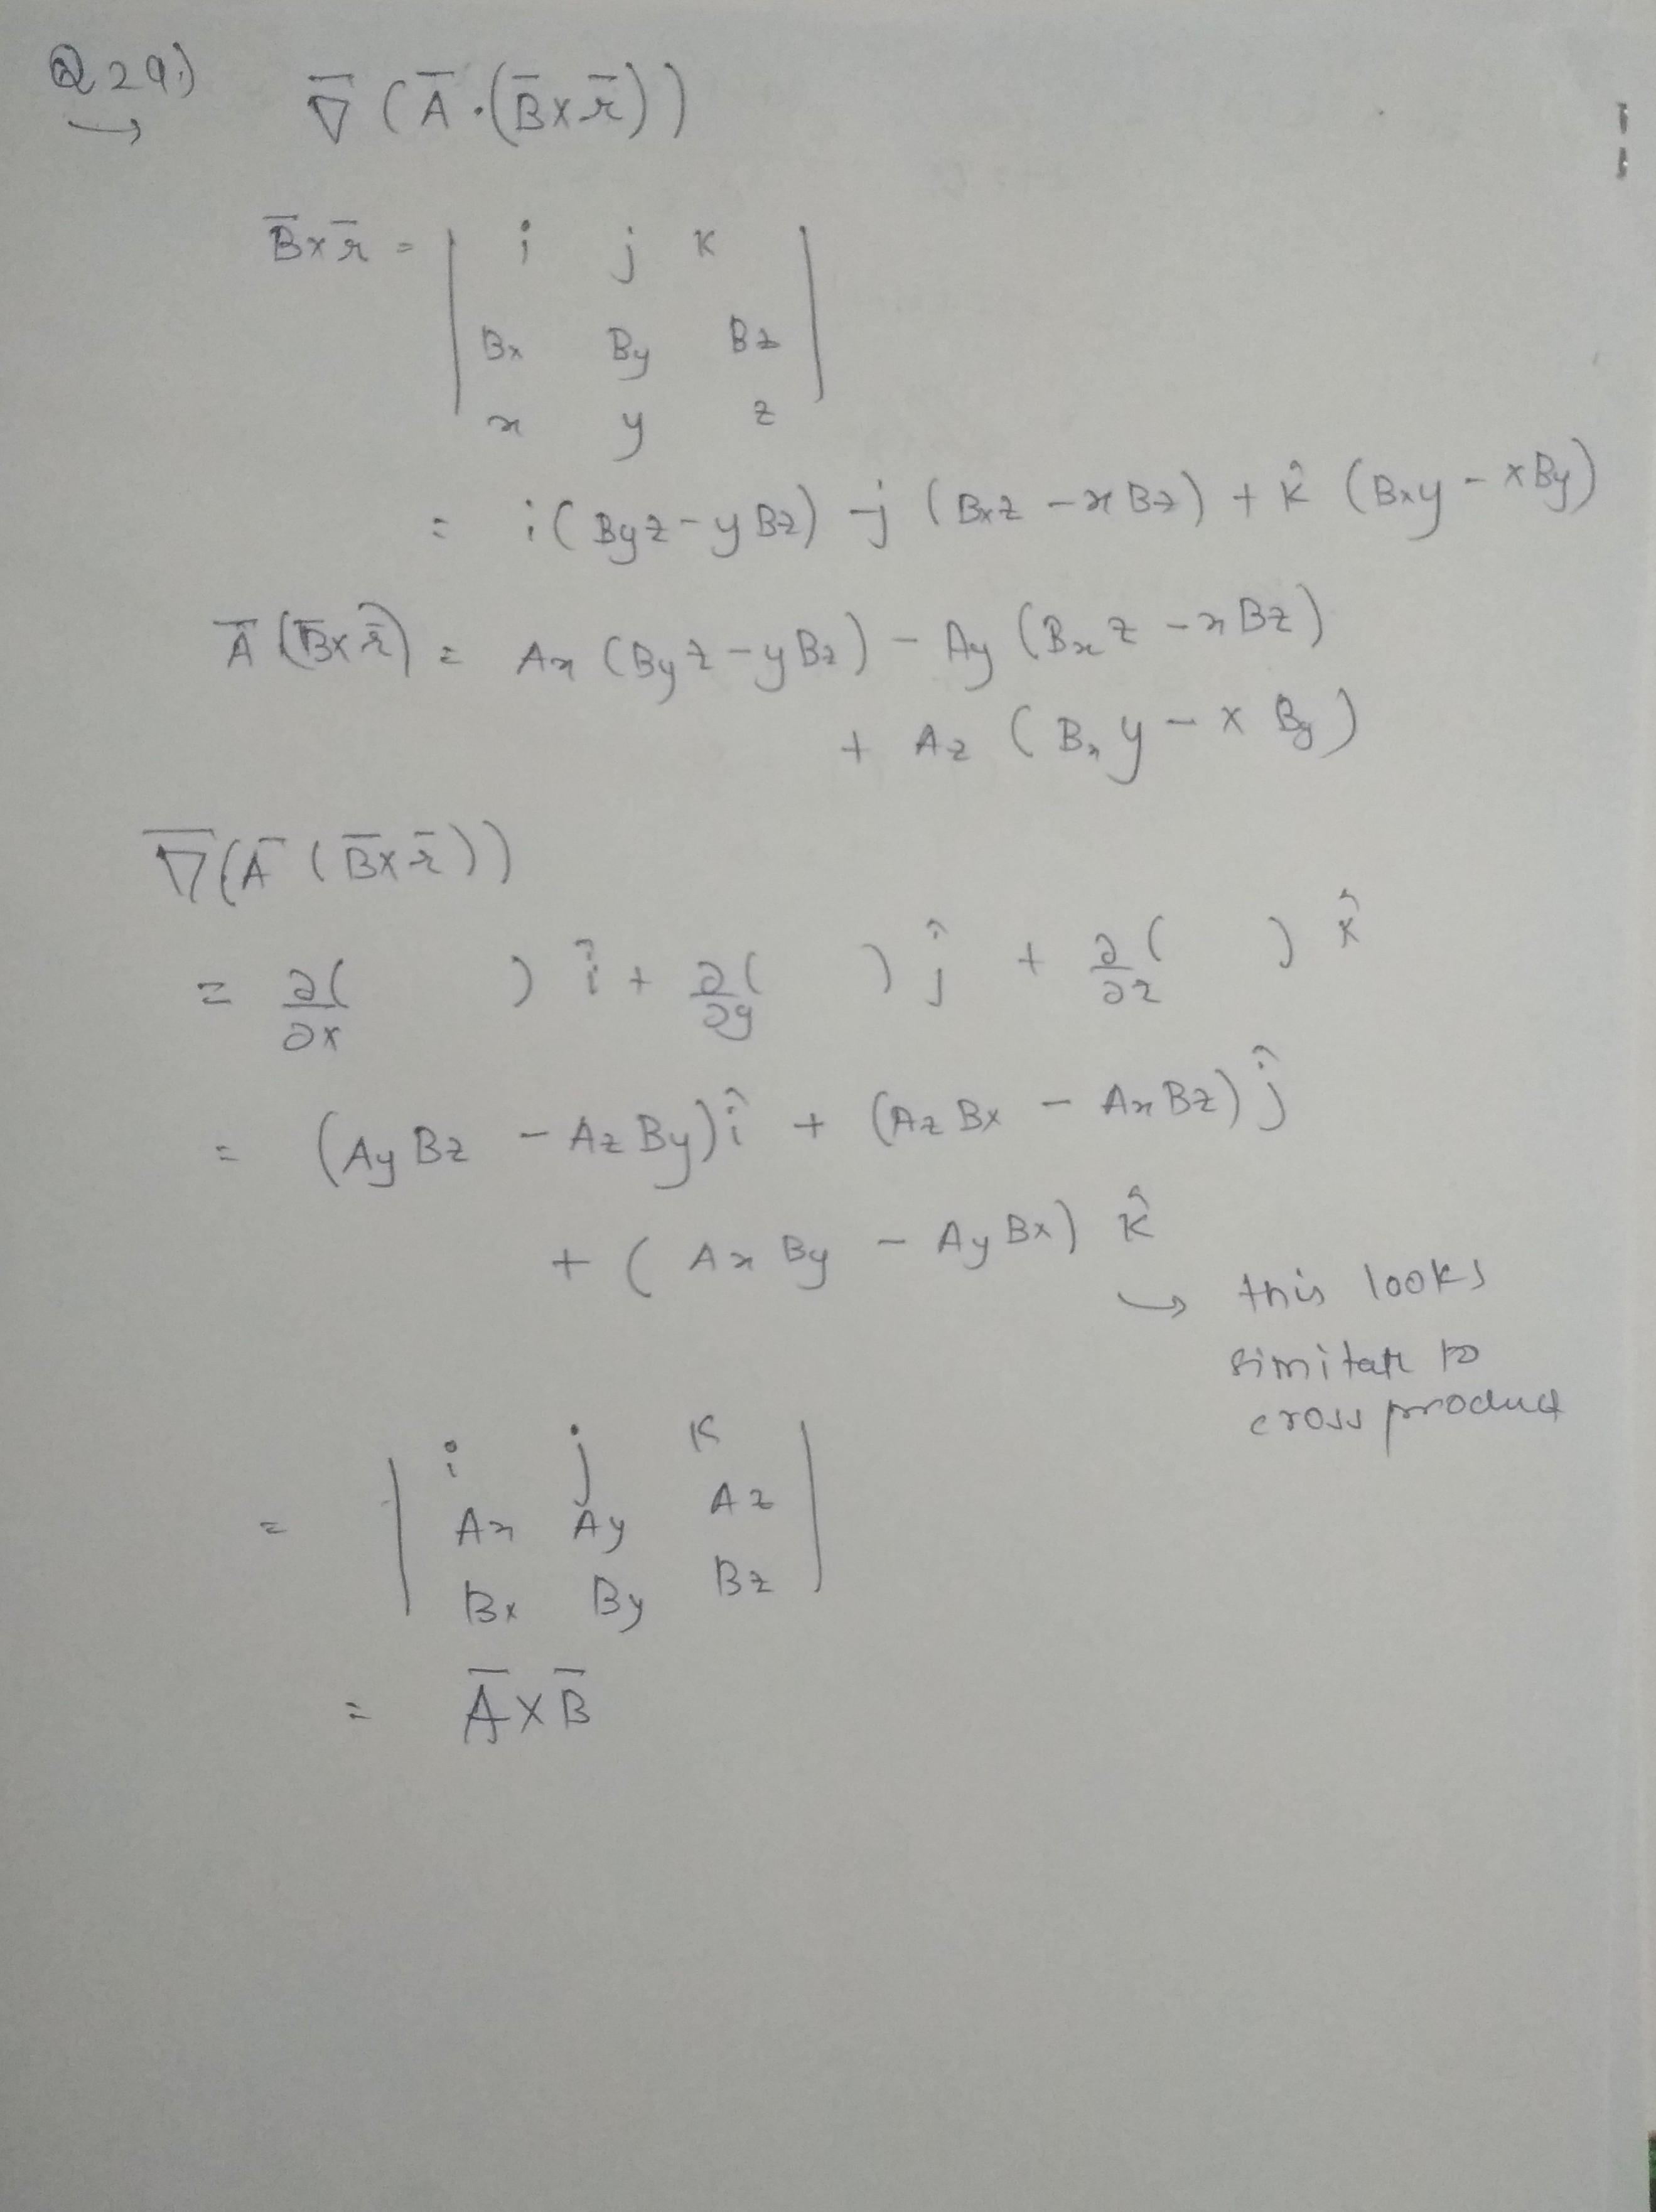 Q29.) ∇̄ (Ā·(B̄×r̄))
B̄×r̄ = | i j k
Bx By Bz
x y z |
= i(Byz-yBz) -j (Bxz -xBz) + k̂ (Bxy - xBy)
Ā (B̄×r̄) = Ax (Byz-yBz) - Ay (Bxz -xBz)
+ Az (Bxy - xBy)
∇̄(Ā (B̄×r̄))
= ∂/∂x ( ) î + ∂/∂y ( ) ĵ + ∂/∂z ( ) k̂
= (AyBz - AzBy) î + (AzBx - AxBz) ĵ
+ (AxBy - AyBx) k̂
→ this looks
similar to
cross product
= | i j k
Ax Ay Az
Bx By Bz |
= Ā×B̄